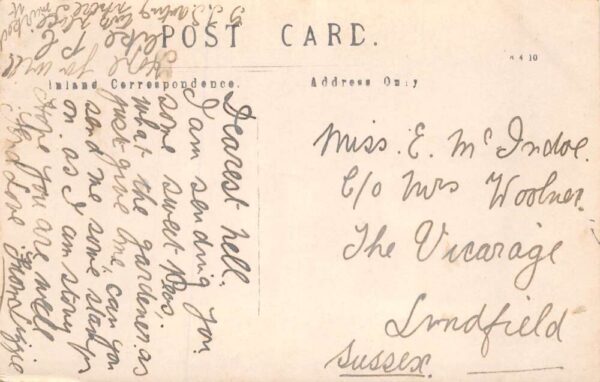 POST CARD.
Inland Correspondence.
Address Only
4 10
Dearest Nell.
I am sending you
some sweet Peas.
what the gardener as
just give me, can you
send me some stamps
on. as I am stony
Hope you are well
Fond Love From Lizzie
Hope you will
like P.C.
Miss. E. Mc Indoe.
C/o Mrs Woolner.
The Vicarage
Lindfield
Sussex.